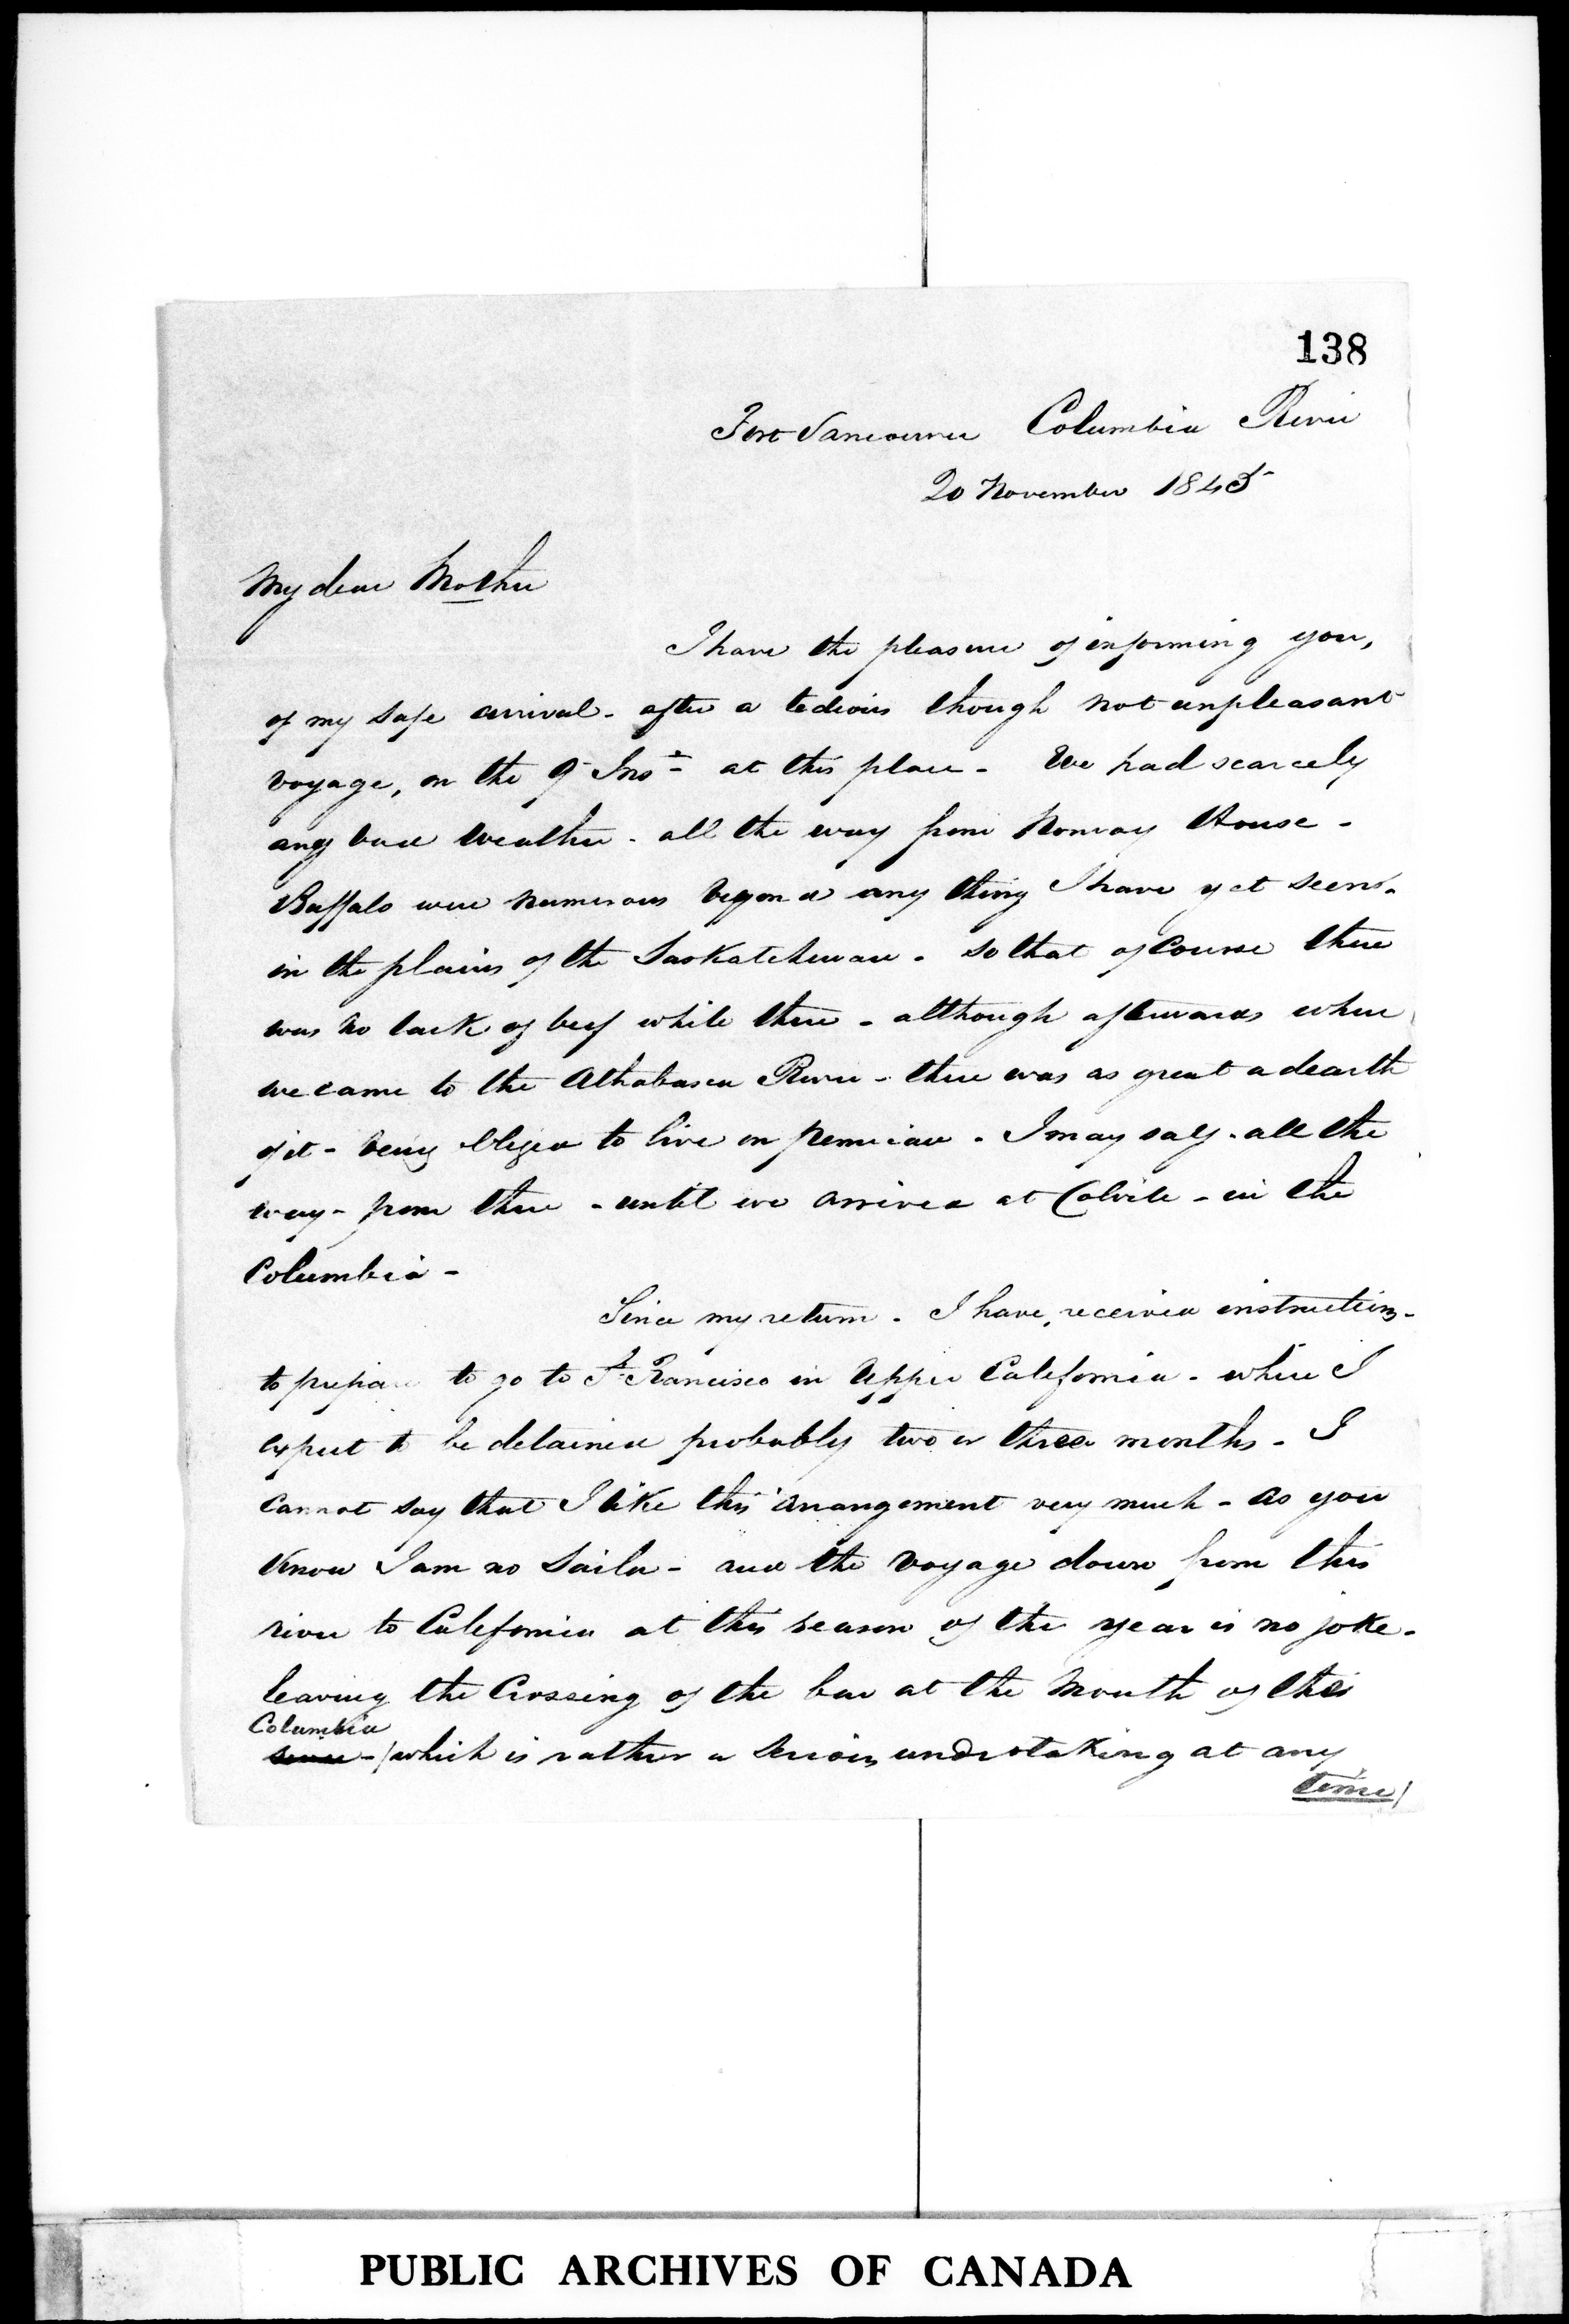 138
Fort Vancouver Columbia River
20 November 1845
My dear Mother
I have the pleasure of informing you,
of my safe arrival - after a tedious though not unpleasant
voyage, on the 9 Inst - at this place - We had scarcely
any bad weather - all the way from Norway House -
Buffalo were numerous beyond any thing I have yet seen -
in the plains of the Saskatchewan - so that of course there
was no lack of beef while there - although afterwards when
we came to the Athabasca River - there was as great a dearth
of it - being obliged to live on pemican - I may say - all the
way - from there - until we arrived at Colvile - in the
Columbia -
Since my return - I have received instructions -
to prepare to go to St Francisco in Upper California - where I
expect to be detained probably two or three months - I
cannot say that I like this arrangement very much - as you
know I am no Sailor - and the voyage down from this
river to California at this season of the year is no joke -
leaving the Crossing of the bar at the Mouth of this
Columbia
river - / which is rather a serious undertaking at any
time /
PUBLIC ARCHIVES OF CANADA